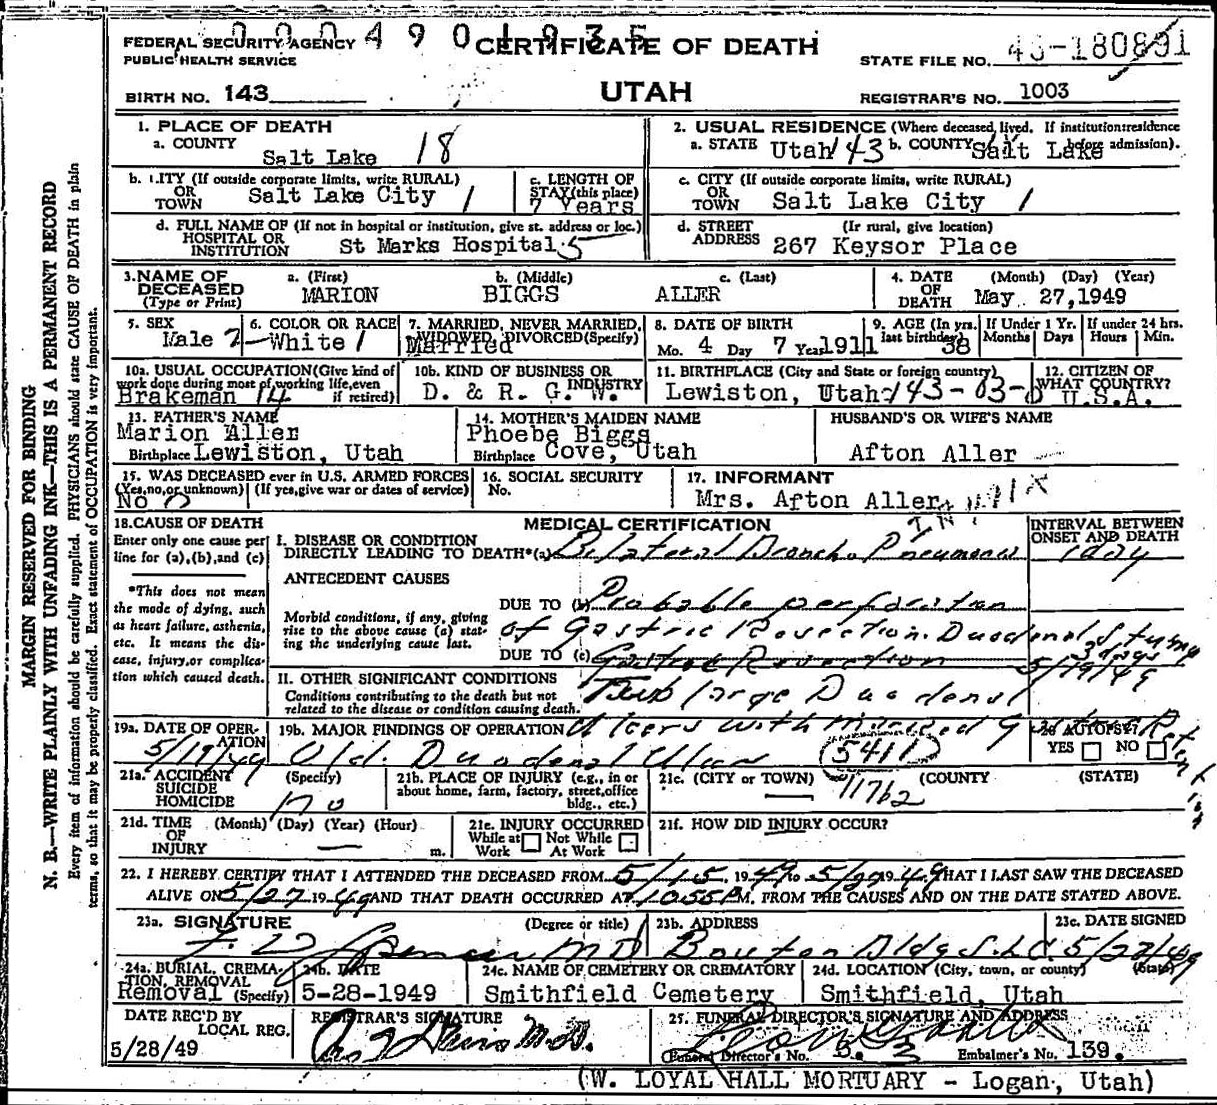 0004901935
FEDERAL SECURITY AGENCY
PUBLIC HEALTH SERVICE
CERTIFICATE OF DEATH
UTAH
STATE FILE NO. 49-180891
BIRTH NO. 143
REGISTRAR'S NO. 1003
MARGIN RESERVED FOR BINDING
N. B.—WRITE PLAINLY WITH UNFADING INK—THIS IS A PERMANENT RECORD
Every item of information should be carefully supplied. PHYSICIANS should state CAUSE OF DEATH in plain
terms, so that it may be properly classified. Exact statement of OCCUPATION is very important.
1. PLACE OF DEATH
a. COUNTY
Salt Lake 18
2. USUAL RESIDENCE (Where deceased lived. If institution:residence before admission).
a. STATE Utah 143 b. COUNTY Salt Lake
b. CITY (If outside corporate limits, write RURAL)
OR TOWN Salt Lake City 1
c. LENGTH OF STAY (this place)
7 Years
c. CITY (If outside corporate limits, write RURAL)
OR TOWN Salt Lake City 1
d. FULL NAME OF (If not in hospital or institution, give st. address or loc.)
HOSPITAL OR INSTITUTION St Marks Hospital 5
d. STREET ADDRESS (If rural, give location)
267 Keysor Place
3. NAME OF DECEASED (Type or Print)
a. (First) MARION
b. (Middle) BIGGS
c. (Last) ALLER
4. DATE OF DEATH (Month) (Day) (Year)
May 27,1949
5. SEX
Male 2
6. COLOR OR RACE
White 1
7. MARRIED, NEVER MARRIED, WIDOWED, DIVORCED (Specify)
Married
8. DATE OF BIRTH
Mo. 4 Day 7 Year 1911
9. AGE (In yrs. last birthday) 38
If Under 1 Yr. Months Days
If under 24 hrs. Hours Min.
10a. USUAL OCCUPATION (Give kind of work done during most of working life, even if retired)
Brakeman 14
10b. KIND OF BUSINESS OR INDUSTRY
D. & R. G. W.
11. BIRTHPLACE (City and State or foreign country)
Lewiston, Utah 143-03-0
12. CITIZEN OF WHAT COUNTRY?
U.S.A.
13. FATHER'S NAME
Marion Aller
Birthplace Lewiston, Utah
14. MOTHER'S MAIDEN NAME
Phoebe Biggs
Birthplace Cove, Utah
HUSBAND'S OR WIFE'S NAME
Afton Aller
15. WAS DECEASED ever in U.S. ARMED FORCES
(Yes,no,or unknown) (If yes,give war or dates of service)
No 0
16. SOCIAL SECURITY
No.
17. INFORMANT
Mrs. Afton Aller
18. CAUSE OF DEATH
Enter only one cause per line for (a),(b),and (c)
*This does not mean the mode of dying, such as heart failure, asthenia, etc. It means the disease, injury,or complication which caused death.
MEDICAL CERTIFICATION
INTERVAL BETWEEN ONSET AND DEATH
I. DISEASE OR CONDITION DIRECTLY LEADING TO DEATH*(a) Bilateral Broncho Pneumonia
1 day
ANTECEDENT CAUSES
Morbid conditions, if any, giving rise to the above cause (a) stating the underlying cause last.
DUE TO (b) Probable perforation
of Gastric Resection Duodenal Stump
3 days
DUE TO (c) Gastric Resection
5/19/49
II. OTHER SIGNIFICANT CONDITIONS
Conditions contributing to the death but not related to the disease or condition causing death.
Two large Duodenal
Ulcers with Marked Gastric Retention
19a. DATE OF OPERATION
5/19/49
19b. MAJOR FINDINGS OF OPERATION
Old. Duodenal Ulcer
5411
20 AUTOPSY?
YES NO
21a. ACCIDENT SUICIDE HOMICIDE (Specify)
no
21b. PLACE OF INJURY (e.g., in or about home, farm, factory, street,office bldg., etc.)
21c. (CITY or TOWN) (COUNTY) (STATE)
1762
21d. TIME OF INJURY (Month) (Day) (Year) (Hour) m.
21e. INJURY OCCURRED
While at Work Not While At Work
21f. HOW DID INJURY OCCUR?
22. I HEREBY CERTIFY THAT I ATTENDED THE DECEASED FROM 5/15 1949 TO 5/27 1949 THAT I LAST SAW THE DECEASED
ALIVE ON 5/27 1949 AND THAT DEATH OCCURRED AT 1055 P M. FROM THE CAUSES AND ON THE DATE STATED ABOVE.
23a. SIGNATURE (Degree or title)
MD
23b. ADDRESS
Bldg S.L.C.
23c. DATE SIGNED
5/28/49
24a. BURIAL, CREMATION, REMOVAL (Specify)
Removal
24b. DATE
5-28-1949
24c. NAME OF CEMETERY OR CREMATORY
Smithfield Cemetery
24d. LOCATION (City, town, or county) (State)
Smithfield, Utah
DATE REC'D BY LOCAL REG.
5/28/49
REGISTRAR'S SIGNATURE
M.D.
25. FUNERAL DIRECTOR'S SIGNATURE AND ADDRESS
(Funeral Director's No. Embalmer's No. 139.
(W. LOYAL HALL MORTUARY - Logan, Utah)